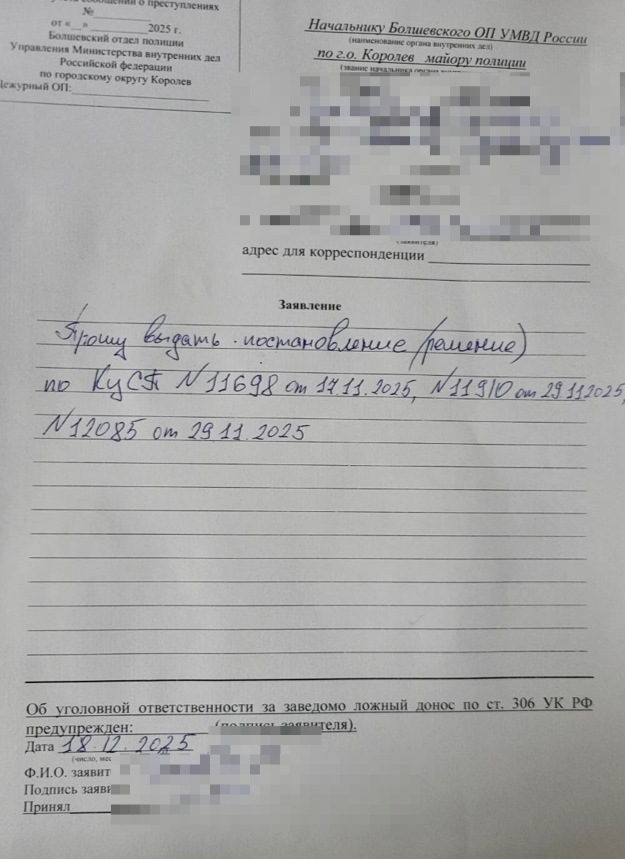 сообщений о преступлениях
№
от « » 2025 г.
Болшевский отдел полиции
Управления Министерства внутренних дел
Российской федерации
по городскому округу Королев
Дежурный ОП:
Начальнику Болшевского ОП УМВД России
(наименование органа внутренних дел)
по г.о. Королев майору полиции
(звание начальника органа
адрес для корреспонденции
Заявление
Прошу выдать постановление (решение)
по КуСП N11698 от 17.11.2025, N11910 от 29.11 2025,
N12085 от 29.11.2025
Об уголовной ответственности за заведомо ложный донос по ст. 306 УК РФ
предупрежден: (подпись заявителя).
Дата 18.12.2025
(число, мес
Ф.И.О. заявит
Подпись заяви
Принял